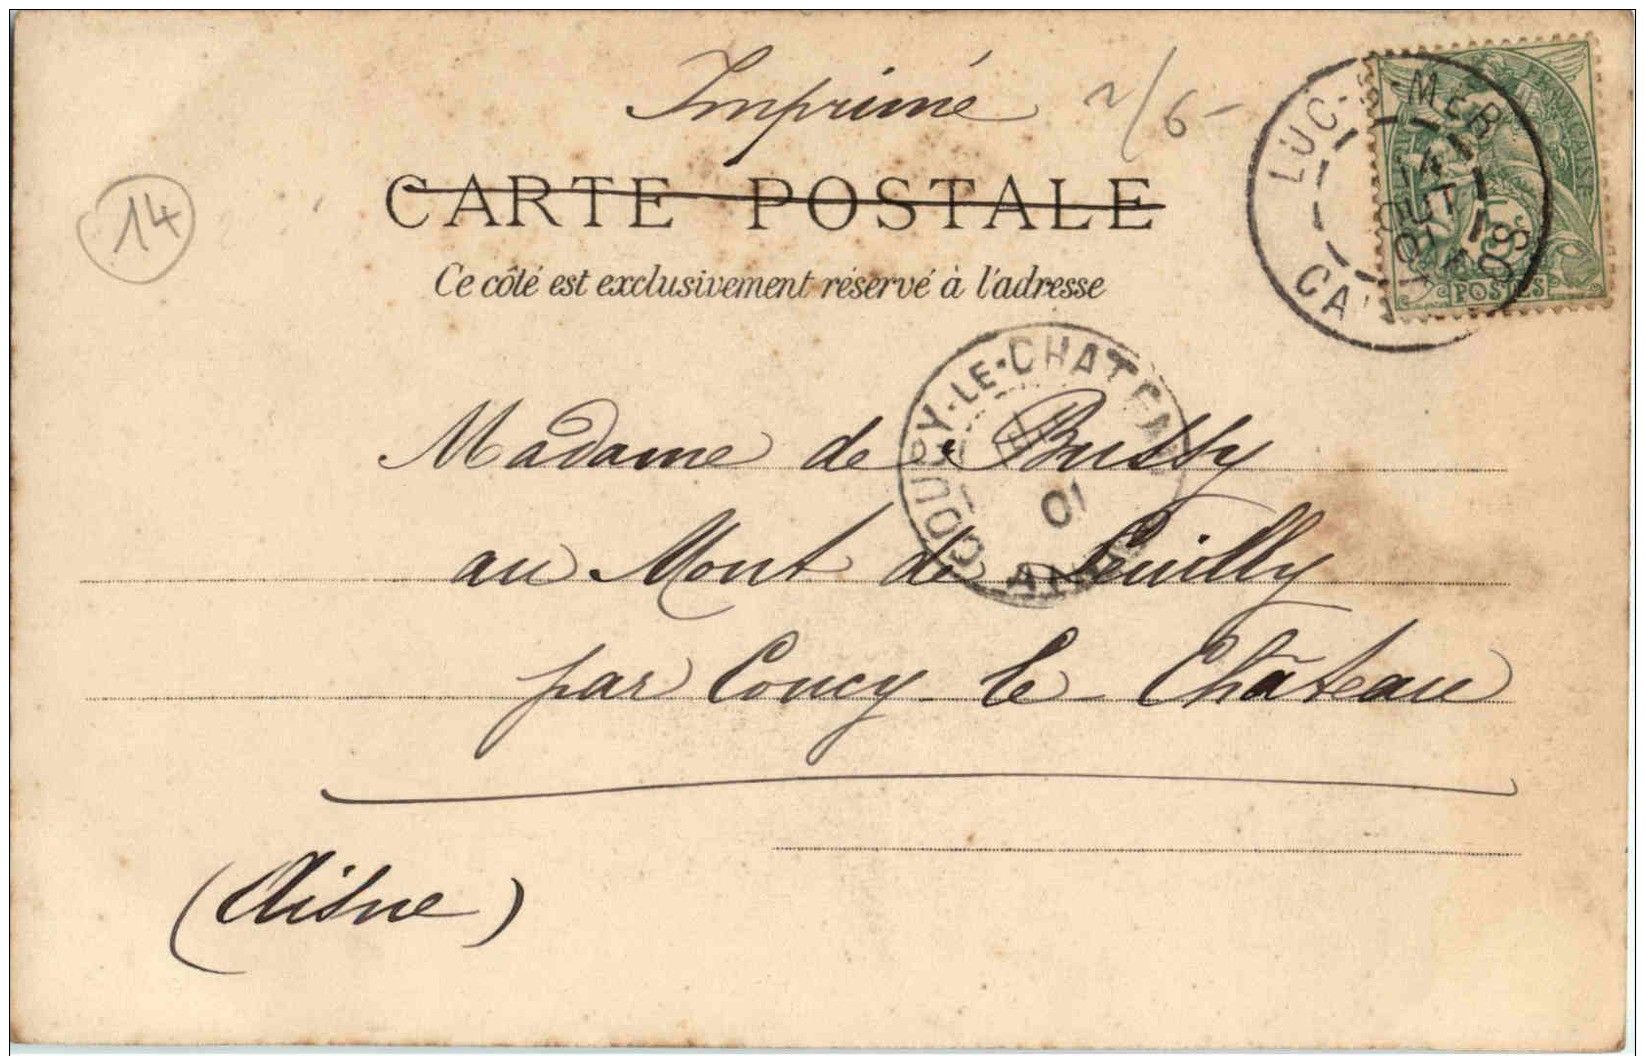 Imprimé 2/6-
14
CARTE POSTALE
Ce côté est exclusivement réservé à l'adresse
LUC-S-MER
14
OUT
01
CA
POSTES
COUCY-LE-CHATEAU
01
AISNE
Madame de Bussy
au Mont de Leuilly
par Coucy le Château
(Aisne)